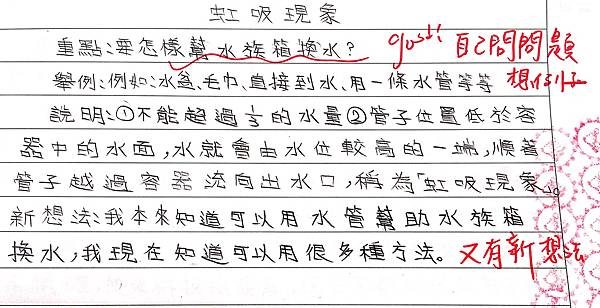 虹吸現象
重點:要怎樣幫水族箱換水? good! 自己問問題
舉例:例如:水盆、毛巾、直接到水、用一條水管等等 想例子
說明:①不能超過½的水量②管子位置低於容
器中的水面,水就會由水位較高的一端,順著
管子越過容器流向出水口,稱為「虹吸現象」。
新想法:我本來知道可以用水管幫助水族箱
換水,我現在知道可以用很多種方法。又有新想法